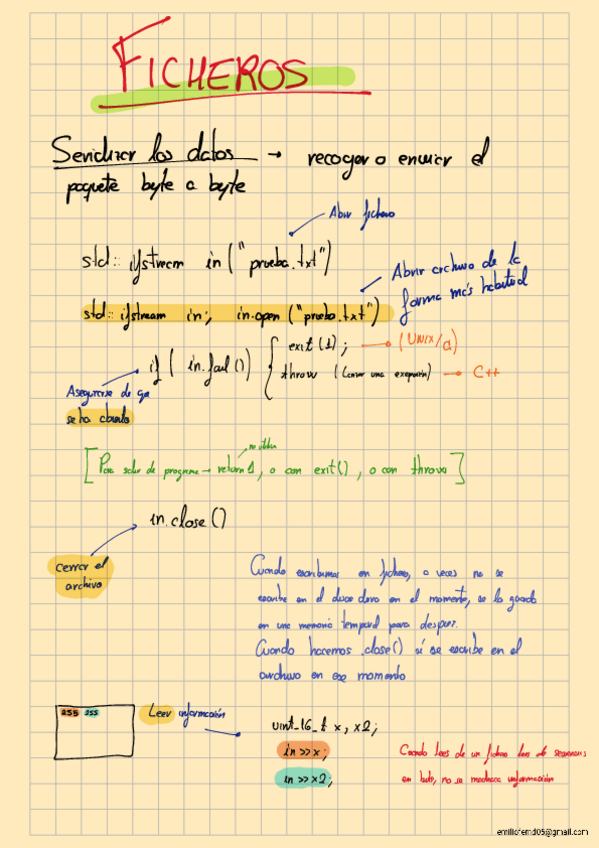 FICHEROS
Serializar los datos → recoger o enviar el
paquete byte a byte
Abrir fichero
std:: ifstream in ("prueba.txt")
Abrir archivo de la
forma más habitual
std:: ifstream in; in.open ("prueba.txt")
if ( in.fail ()) { exit (1); → (UNIX/C)
throw (lanzar una excepción) → C++
Asegurarse de que
se ha abierto
no utilizar
[Para salir de programa → return 1, o con exit(), o con throw]
in.close ()
cerrar el
archivo
Cuando escribimos en fichero, a veces no se
escribe en el disco duro en el momento, se lo guarda
en una memoria temporal para después.
Cuando hacemos .close() sí se escribe en el
archivo en ese momento
255 255
Leer información
uint_16_t x, x2;
in >> x;
in >> x2;
Cuando lees de un fichero lees de
en byte, no se machaca información
emiliofernd05@gmail.com